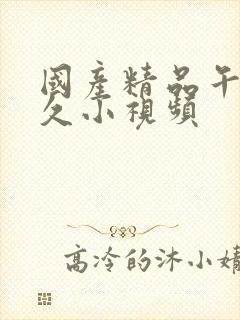 國產精品午
久小視頻
高冷的沐小婧